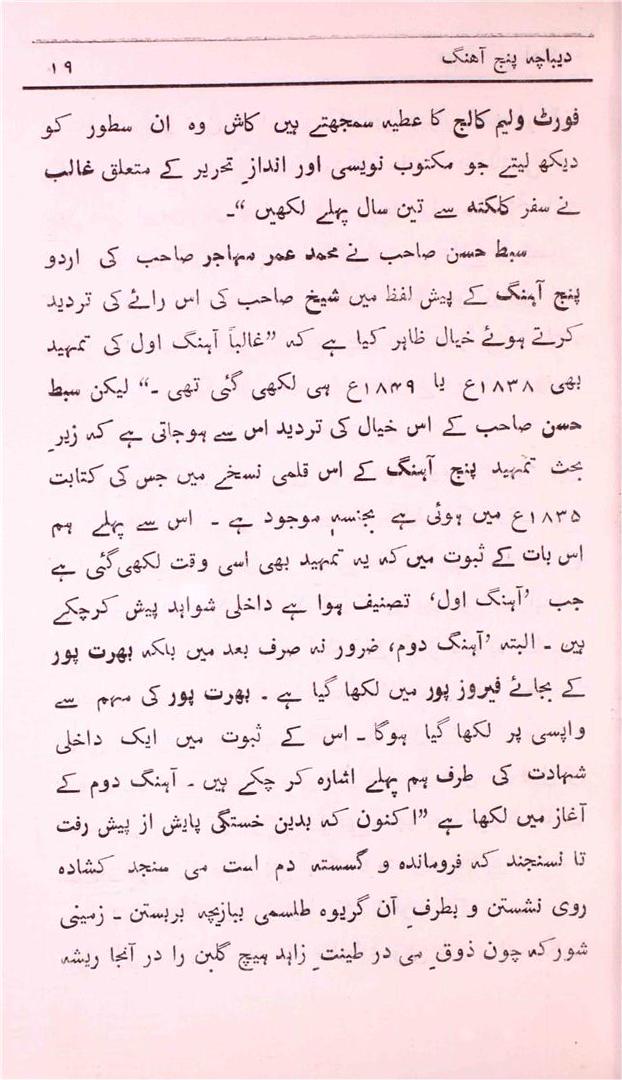 دیباچہ پنج آہنگ ۱۹
فورٹ ولیم کالج کا عطیہ سمجھتے ہیں کاش وہ ان سطور کو
دیکھ لیتے جو مکتوب نویسی اور اندازِ تحریر کے متعلق غالب
نے سفر کلکتہ سے تین سال پہلے لکھیں “۔
سبط حسن صاحب نے محمد عمر مہاجر صاحب کی اردو
پنج آہنگ کے پیش لفظ میں شیخ صاحب کی اس رائے کی تردید
کرتے ہوئے خیال ظاہر کیا ہے کہ ”غالباً آہنگ اول کی تمہید
بھی ۱۸۳۸ع یا ۱۸۴۹ع ہی لکھی گئی تھی ۔“ لیکن سبط
حسن صاحب کے اس خیال کی تردید اس سے ہوجاتی ہے کہ زیرِ
بحث تمہید پنج آہنگ کے اس قلمی نسخے میں جس کی کتابت
۱۸۳۵ع میں ہوئی ہے بجنسہٖ موجود ہے ۔ اس سے پہلے ہم
اس بات کے ثبوت میں کہ یہ تمہید بھی اسی وقت لکھی گئی ہے
جب ’آہنگ اول‘ تصنیف ہوا ہے داخلی شواہد پیش کرچکے
ہیں ۔ البتہ ’آہنگ دوم، ضرور نہ صرف بعد میں بلکہ بھرت پور
کے بجائے فیروز پور میں لکھا گیا ہے ۔ بھرت پور کی مہم سے
واپسی پر لکھا گیا ہوگا ۔ اس کے ثبوت میں ایک داخلی
شہادت کی طرف ہم پہلے اشارہ کر چکے ہیں ۔ آہنگ دوم کے
آغاز میں لکھا ہے ”اکنون کہ بدین خستگی پایش از پیش رفت
تا نسنجند کہ فروماندہ و گسستہ دم است می سنجد کشادہ
روی نشستن و بطرفِ آن گریوہ طلسمی ببازیچہ بربستن ۔ زمینی
شور کہ چون ذوقِ می در طینتِ زاہد ہیچ گلبن را در آنجا ریشہ